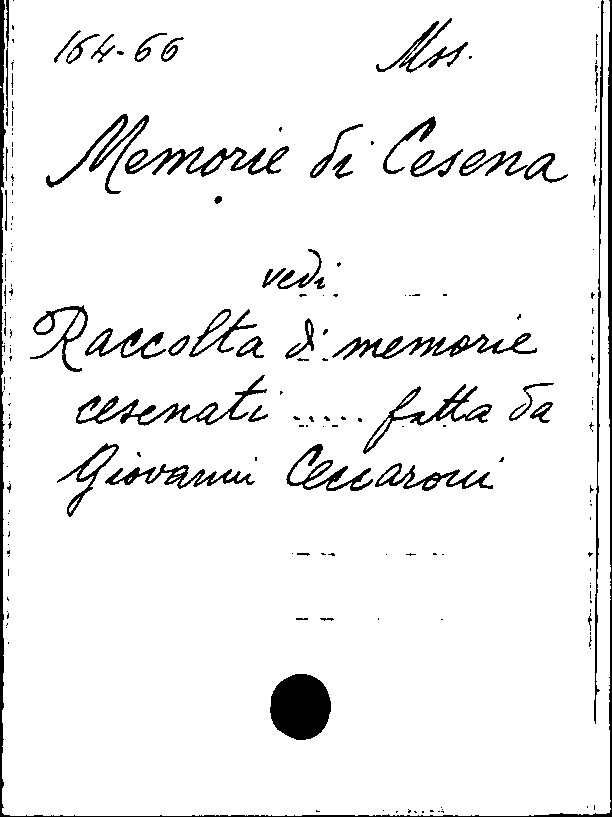 164-66 Mss.
Memorie di Cesena
vedi
Raccolta di memorie
cesenati ..... fatta da
Giovanni Ceccaroni